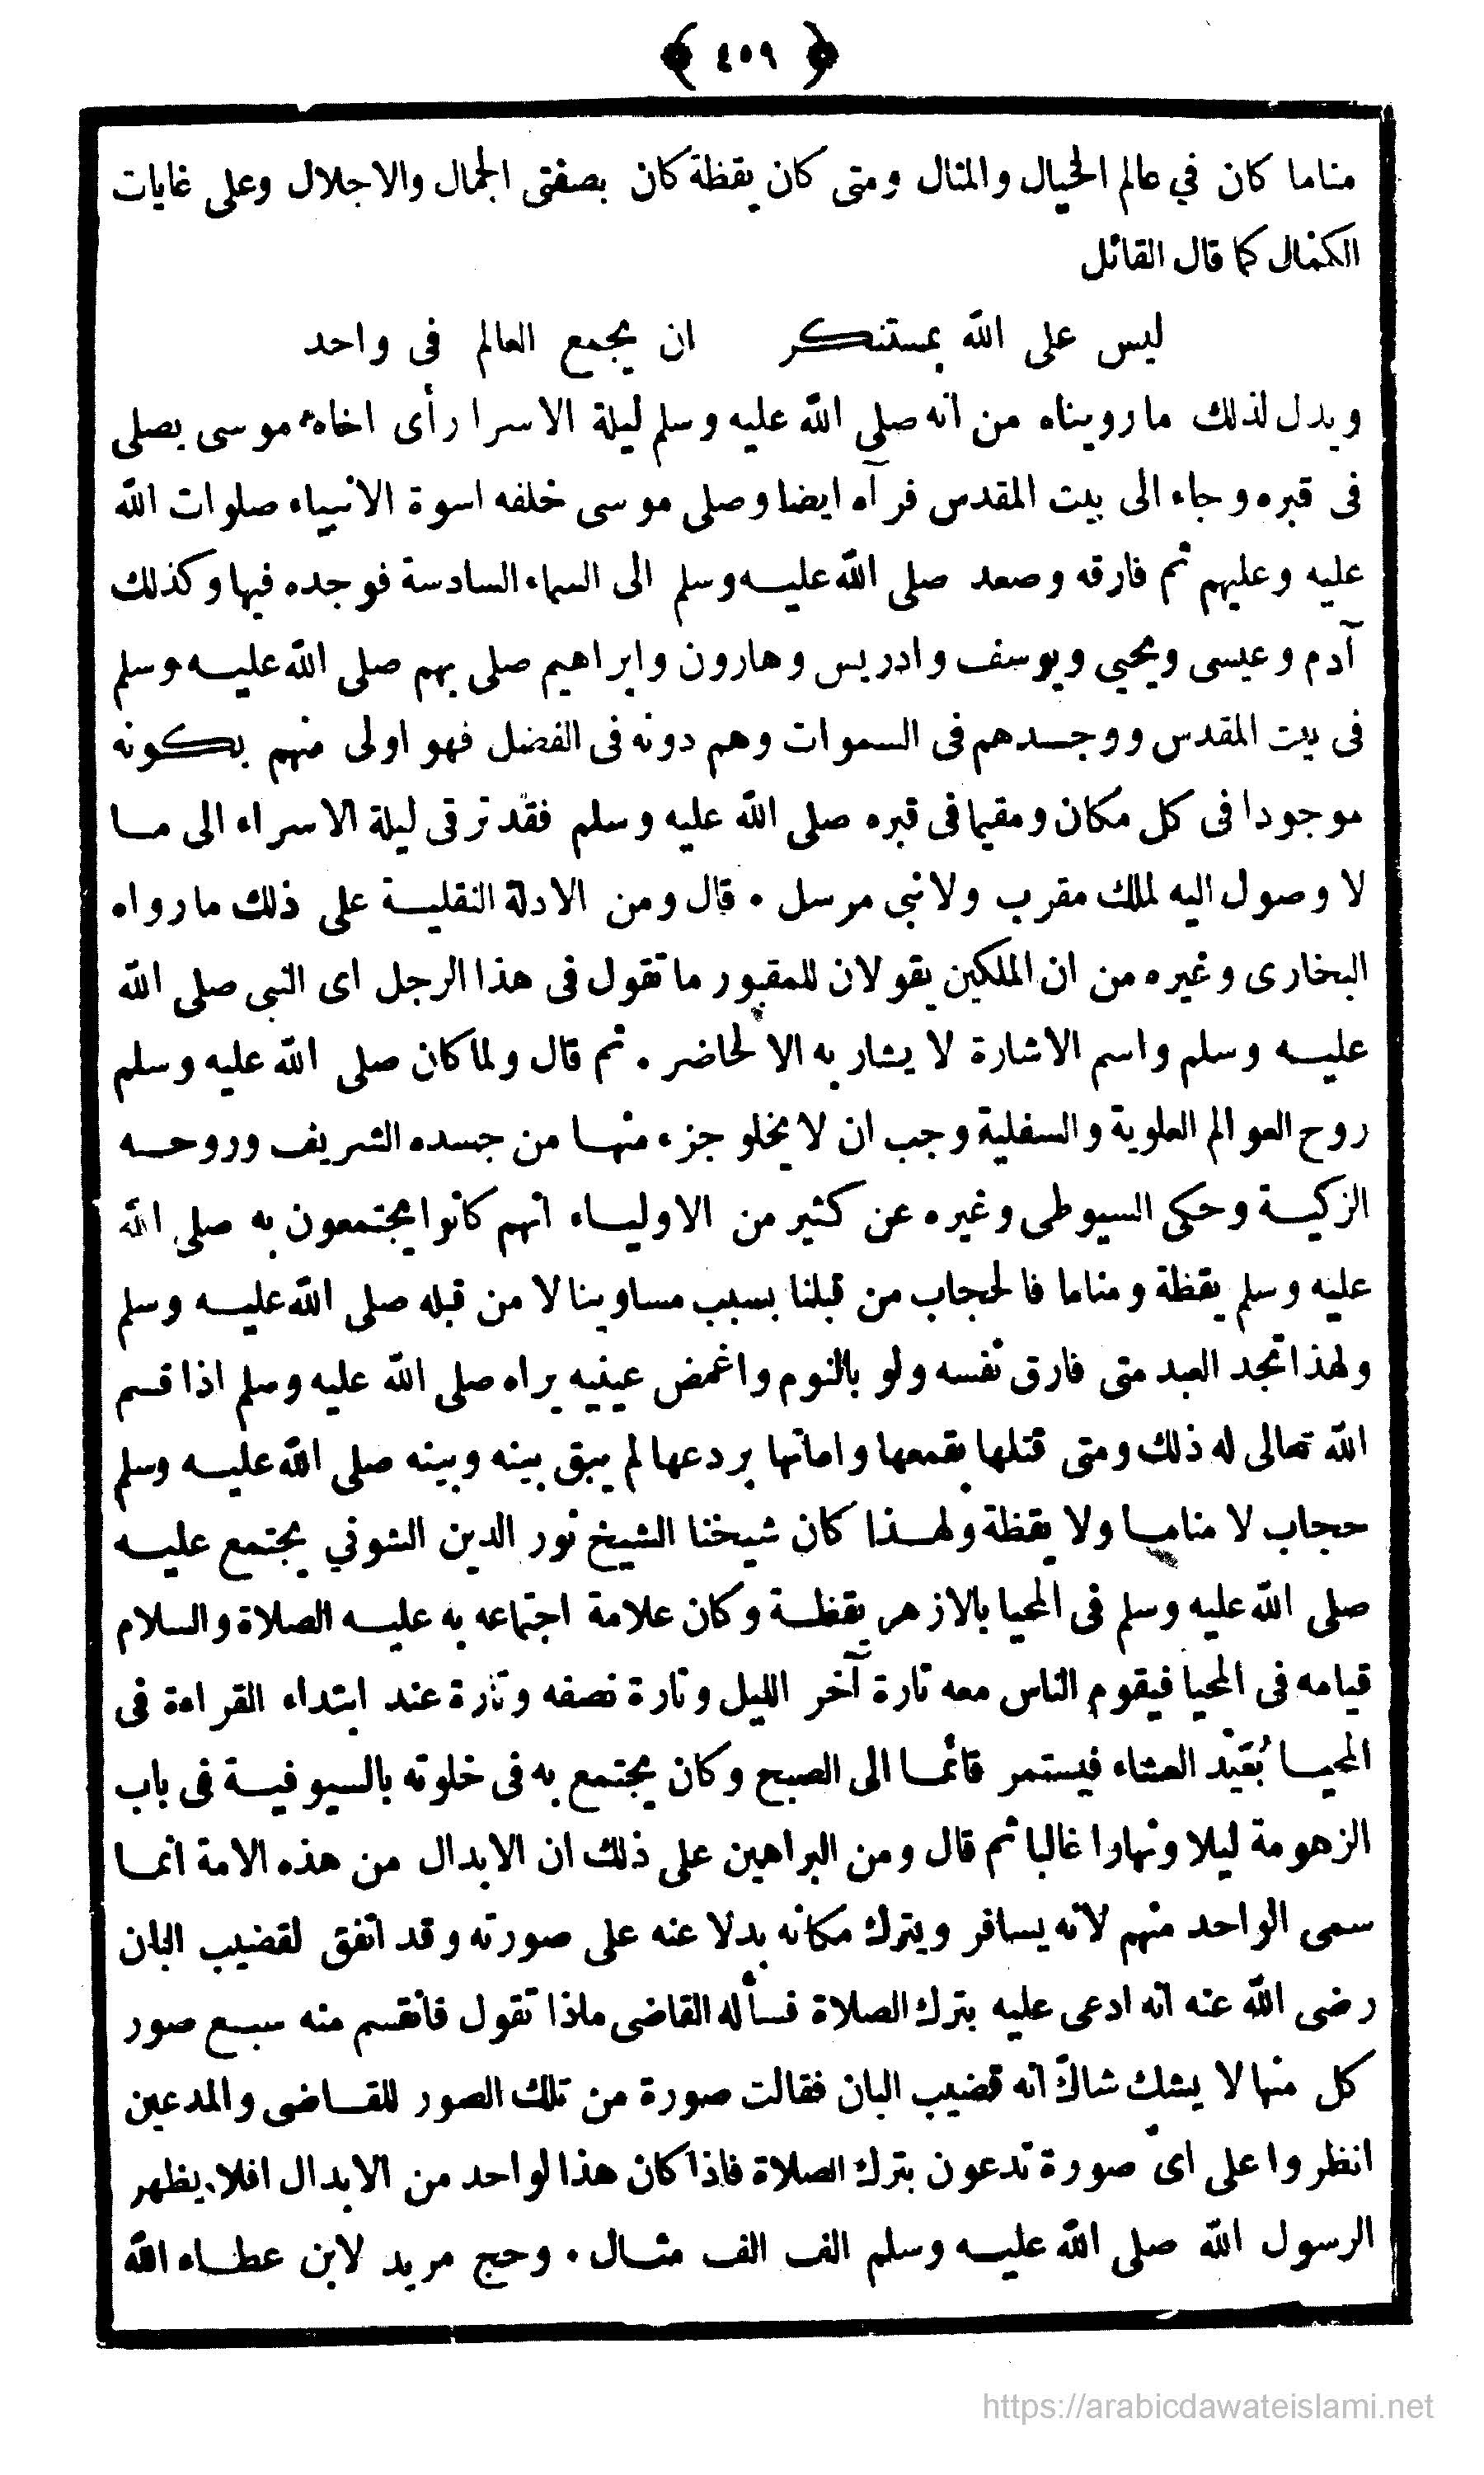 ﴿ ٤٥٩ ﴾
مناما كان في عالم الخيال والمثال ومتى كان يقظة كان بصفتى الجمال والاجلال وعلى غايات
الكمال كما قال القائل
ليس على الله بمستنكر ان يجمع العالم فى واحد
ويدل لذلك ما رويناه من انه صلى الله عليه وسلم ليلة الاسرا رأى اخاه موسى يصلى
فى قبره وجاء الى بيت المقدس فرآه ايضا وصلى موسى خلفه اسوة الانبياء صلوات الله
عليه وعليهم ثم فارقه وصعد صلى الله عليه وسلم الى السماء السادسة فوجده فيها وكذلك
آدم وعيسى ويحيى ويوسف وادريس وهارون وابراهيم صلى بهم صلى الله عليه وسلم
فى بيت المقدس ووجدهم فى السموات وهم دونه فى الفضل فهو اولى منهم بكونه
موجودا فى كل مكان ومقيما فى قبره صلى الله عليه وسلم فقد ترقى ليلة الاسراء الى ما
لا وصول اليه لملك مقرب ولا نبى مرسل • قال ومن الادلة النقلية على ذلك ما رواه
البخارى وغيره من ان الملكين يقولان للمقبور ما تقول فى هذا الرجل اى النبى صلى الله
عليه وسلم واسم الاشارة لا يشار به الا لحاضر • ثم قال ولما كان صلى الله عليه وسلم
روح العوالم العلوية والسفلية وجب ان لا يخلو جزء منها من جسده الشريف وروحه
الزكية وحكى السيوطى وغيره عن كثير من الاولياء انهم كانوا يجتمعون به صلى الله
عليه وسلم يقظة ومناما فالحجاب من قبلنا بسبب مساوينا لا من قبله صلى الله عليه وسلم
ولهذا تجد العبد متى فارق نفسه ولو بالنوم واغمض عينيه يراه صلى الله عليه وسلم اذا قسم
الله تعالى له ذلك ومتى قتلها بقمعها واماتها بردعها لم يبق بينه وبينه صلى الله عليه وسلم
حجاب لا مناما ولا يقظة ولهذا كان شيخنا الشيخ نور الدين الشوني يجتمع عليه
صلى الله عليه وسلم فى المحيا بالازهر يقظة وكان علامة اجتماعه به عليه الصلاة والسلام
قيامه فى المحيا فيقوم الناس معه تارة آخر الليل وتارة نصفه وتارة عند ابتداء القراءة فى
المحيا بُعَيْد العشاء فيستمر قائما الى الصبح وكان يجتمع به فى خلوته بالسيوفية فى باب
الزهومة ليلا ونهارا غالبا ثم قال ومن البراهين على ذلك ان الابدال من هذه الامة انما
سمى الواحد منهم لانه يسافر ويترك مكانه بدلا عنه على صورته وقد اتفق لقضيب البان
رضى الله عنه انه ادعى عليه بترك الصلاة فسأله القاضى ماذا تقول فانقسم منه سبع صور
كل منها لا يشك شاكّ انه قضيب البان فقالت صورة من تلك الصور للقاضى والمدعين
انظروا على اىّ صورة تدعون بترك الصلاة فاذا كان هذا لواحد من الابدال افلا يظهر
الرسول الله صلى الله عليه وسلم الف الف مثال • وحج مريد لابن عطاء الله
https://arabicdawateislami.net